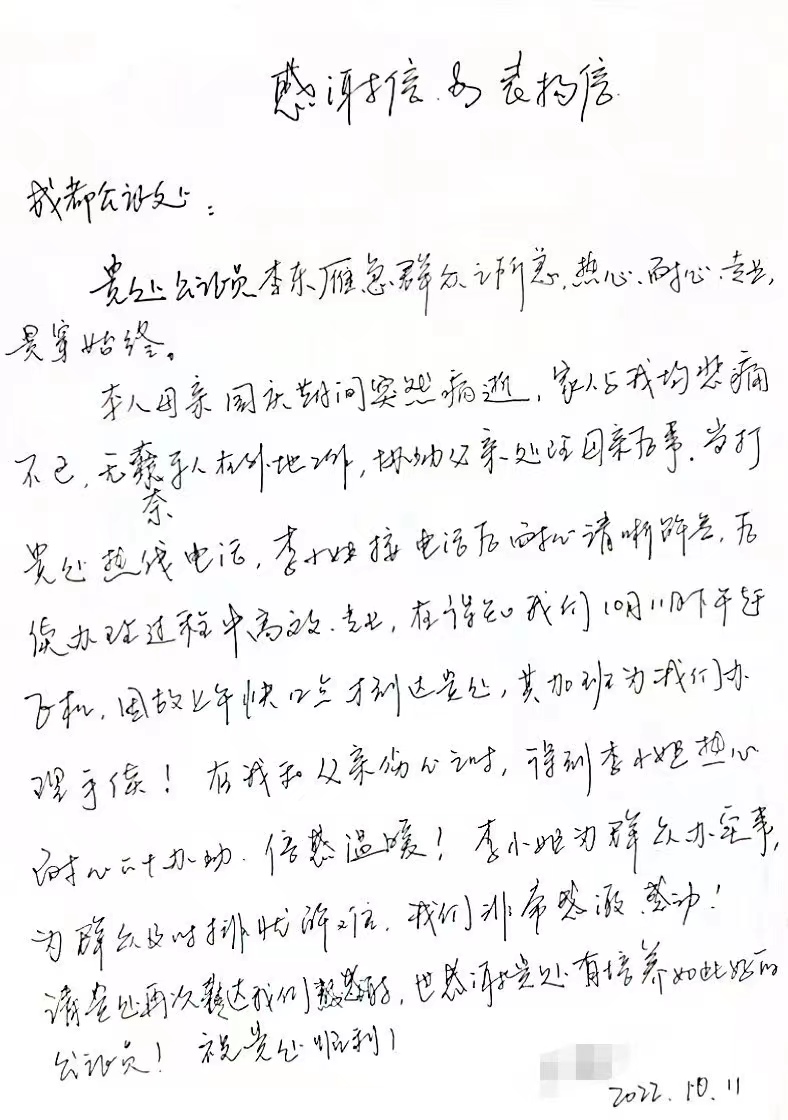 感谢信及表扬信
成都公证处：
贵处公证员李东雁急群众之所急，热心、耐心、专业，
贯穿始终。
本人母亲国庆期间突然病逝，家人与我均悲痛
不已，无奈本人在外地工作，协助父亲处理母亲后事。当打
贵处热线电话，李小姐接电话后耐心清晰解答，后
续办理过程中高效、专业，在得知我们10月11日下午赶
飞机，因故上午快12点才到达贵处，其加班为我们办
理手续！在我和父亲伤心之时，得到李小姐热心
耐心的办助，倍感温暖！李小姐为群众办实事，
为群众及时排忧解难，我们非常感激、感动！
请贵处再次转达我们感谢，也感谢贵处有培养如此好的
公证员！祝贵处顺利！
2022.10.11